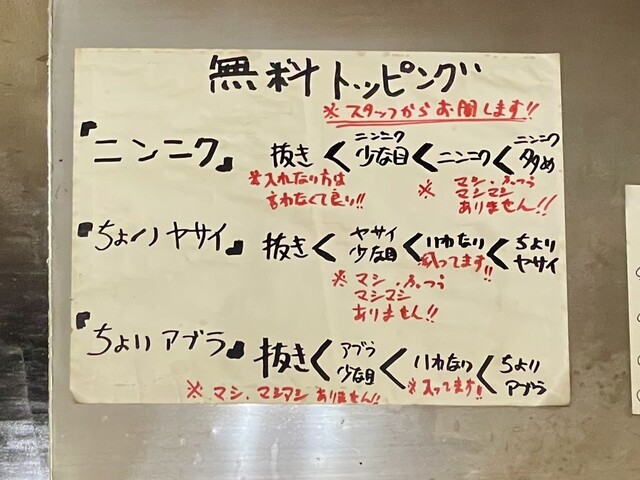 無料トッピング
※スタッフからお聞します!!
『ニンニク』 抜き < ニンニク少な目 < ニンニク < ニンニク多め
※入れない方は言わなくて良い!!
※マシ・ふつう
マシマシ
ありません!!
『ちょいヤサイ』 抜き < ヤサイ少な目 < いわない < ちょいヤサイ
※入ってます!!
※マシ・ふつう
マシマシ
ありません!!
『ちょいアブラ』 抜き < アブラ少な目 < いわない < ちょいアブラ
※入ってます!!
※マシ、マシマシありません!!